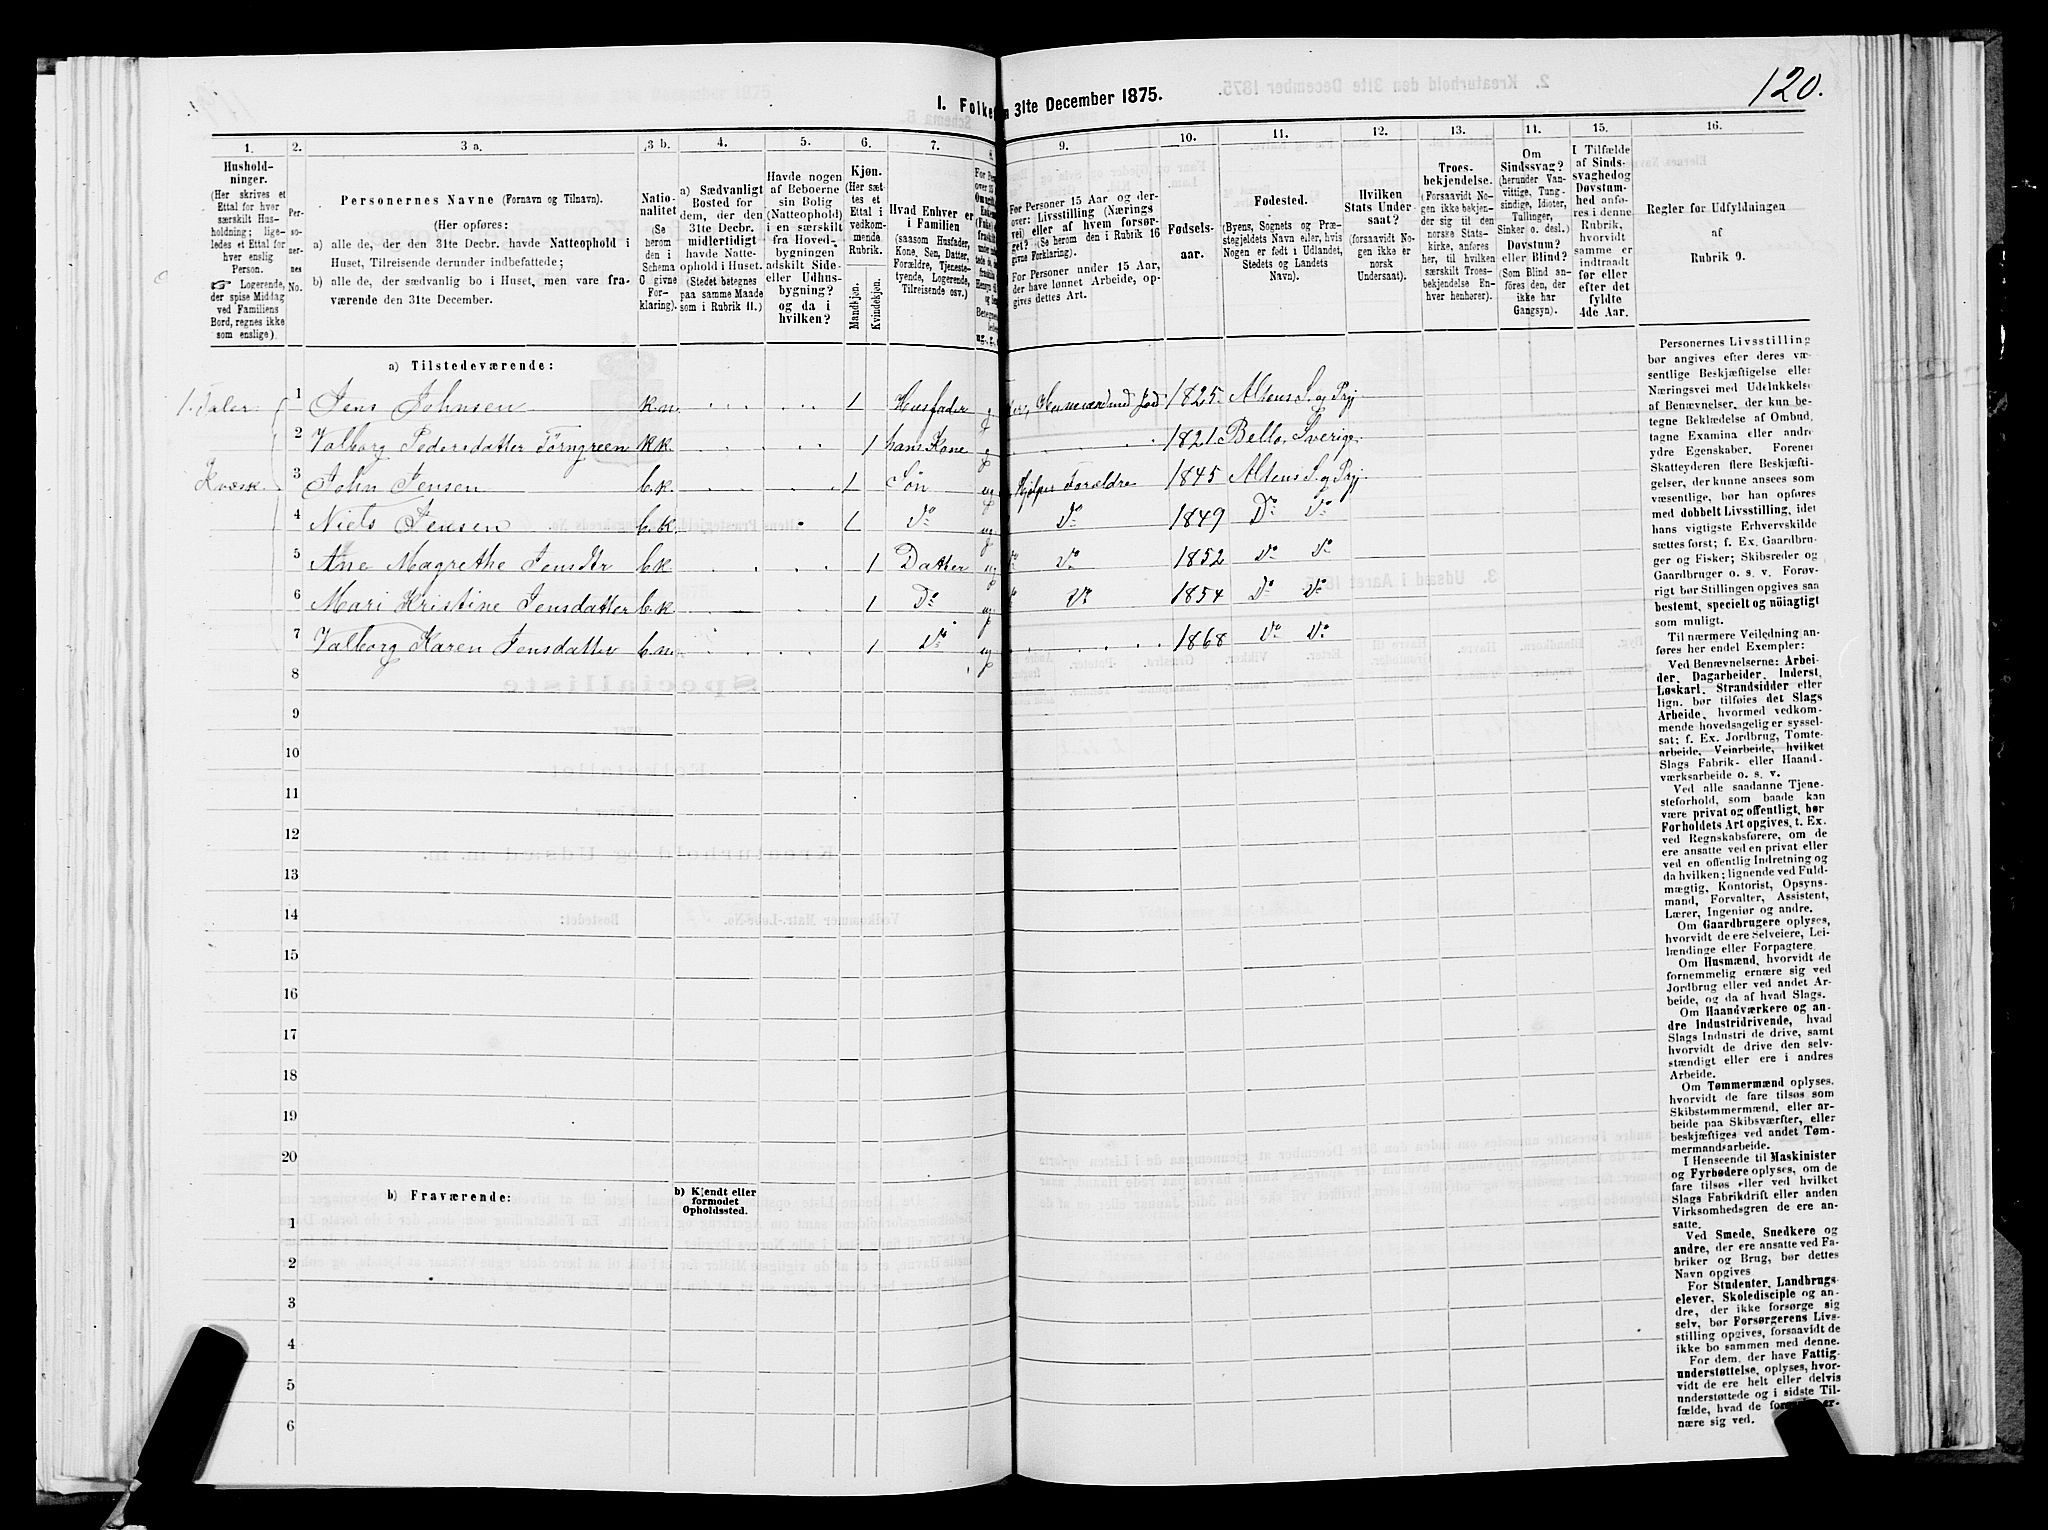 120.
1. Folke
31te December 1875.
1.
Hushold-
ninger.
(Her skrives et
Ettal for hver
særskilt Hus-
holdning; lige-
ledes et Ettal for
hver enslig
Person.
☞ Logerende,
der spise Middag
ved Familiens
Bord, regnes ikke
som enslige).
2.
Per-
so-
ner-
nes
No.
3 a.
Personernes Navne (Fornavn og Tilnavn).
(Her opføres:
a) alle de, der den 31te Decbr. havde Natteophold i
Huset, Tilreisende derunder indbefattede;
b) alle de, der sædvanlig bo i Huset, men vare fra-
værende den 31te December.
3 b.
Natio-
nalitet
(Se
herom
den i
Schema
C givne
For-
klaring).
4.
a) Sædvanligt
Bosted for
dem, der den
31te Decbr.
midlertidigt
havde Natte-
ophold i Huset.
(Stedet betegnes
paa samme Maade
som i Rubrik 11.)
5.
Havde nogen
af Beboerne
sin Bolig
(Natteophold)
i en særskilt
fra Hoved-
bygningen
adskilt Side-
eller Udhus-
bygning?
og da i
hvilken?
6.
Kjøn.
(Her sæt-
tes et
Ettal i
vedkom-
mende
Rubrik.
Mandkjøn.
Kvindekjøn.
7.
Hvad Enhver er
i Familien
(saasom Husfader,
Kone, Søn, Datter,
Forældre, Tjeneste-
tyende, Logerende,
Tilreisende osv.)
9.
For Personer 15 Aar og der-
over: Livsstilling (Nærings
vei) eller af hvem forsør-
get? (Se herom den i Rubrik 16
givne Forklaring).
For Personer under 15 Aar,
der have lønnet Arbeide, op-
gives dettes Art.
10.
Fødsels-
aar.
11.
Fødested.
(Byens, Sognets og Præ-
stegjeldets Navn eller, hvis
Nogen er født i Udlandet,
Stedets og Landets
Navn).
12.
Hvilken
Stats Under
saat?
(forsaavidt No-
gen ikke er
norsk
Undersaat).
13.
Troes-
bekjendelse.
(Forsaavidt No-
gen ikke bekjen-
der sig til den
norske Stats-
kirke, anføres
her, til hvilken
særskilt Troes-
bekjendelse En-
hver henhører).
14.
Om
Sindssvag?
(herunder Van-
vittige, Tung-
sindige, Idioter,
Tullinger,
Sinker o. desl.)
Døvstum?
eller Blind?
(Som Blind an-
føres den, der
ikke har
Gangsyn).
15.
I Tilfælde
af Sinds-
svaghed og
Døvstum-
hed anfø-
res i denne
Rubrik,
hvorvidt
samme er
indtraadt
før eller
efter det
fyldte
4de Aar.
16.
Regler for Udfyldningen
af
Rubrik 9.
a) Tilstedeværende:
1 Jens Johnsen k.n. 1 Husfader g 1825. Altens S. og Prgj
2 Valborg Pedersdatter Törngreen k.k. 1 hans Kone g 1821 Sverige
Kvæsk.
3 John Jensen b.k. 1 Søn ug hjelper Foreldre 1845 Altens S. og Prgj
4 Niels Jensen b.k. 1 Do ug Do 1849 Do Do
5 Ane Magrethe Jensdtr b.k 1 Datter ug Do 1852 Do Do
6 Mari Kristine Jensdatter b.k 1 Do ug Do 1854 Do Do
7 Valborg Karen Jensdatter b.n. 1 Do ug 1868 Do Do
8
9
10
11
12
13
14
15
16
17
18
19
20
b) Fraværende:
b) Kjendt eller
formodet
Opholdssted.
1
2
3
4
5
6
Personernes Livsstilling
bør angives efter deres væ-
sentlige Beskjæftigelse eller
Næringsvei med Udelukkelse
af Benævnelser, der kun be-
tegne Beklædelse af Ombud,
tagne Examina eller andre
ydre Egenskaber. Forener
Skatteyderen flere Beskjæfti-
gelser, der kunne ansees som
væsentlige, bør han opføres
med dobbelt Livsstilling, idet
hans vigtigste Erhvervskilde
sættes først; f. Ex. Gaardbru-
ger og Fisker; Skibsreder og
Gaardbruger o. s. v. Forøv-
rigt bør Stillingen opgives saa
bestemt, specielt og nøiagtigt
som muligt.
Til nærmere Veiledning an-
føres her endel Exempler:
Ved Benævnelserne: Arbei-
der, Dagarbeider, Inderst,
Løskarl, Strandsidder eller
lign. bør tilføies det Slags
Arbeide, hvormed vedkom-
mende hovedsagelig er syssel-
sat; f. Ex. Jordbrug, Tomte-
arbeide, Veiarbeide, hvilket
Slags Fabrik- eller Haand-
værksarbeide o. s. v.
Ved alle saadanne Tjene-
steforhold, som baade kan
være privat og offentligt, bør
Forholdets Art opgives, t. Ex.
ved Regnskabsførere, om de
ere ansatte ved en privat eller
ved en offentlig Indretning og
da hvilken; lignende ved Fuld-
mægtig, Kontorist, Opsyns-
mand, Forvalter, Assistent,
Lærer, Ingeniør og andre.
Om Gaardbrugere oplyses,
hvorvidt de ere Selveiere, Lei-
lændinge eller Forpagtere.
Om Husmænd, hvorvidt de
fornemmelig ernære sig ved
Jordbrug eller ved andet Ar-
beide, og da af hvad Slags.
Om Haandværkere og an-
dre Industridrivende, hvad
Slags Industri de drive, samt
hvorvidt de drive den selv-
stændigt eller ere i andres
Arbeide.
Om Tømmermænd oplyses,
hvorvidt de fare tilsøs som
Skibstømmermænd, eller ar-
beide paa Skibsværfter, eller
beskjæftiges ved andet Tøm-
mermandsarbeide.
I Henseende til Maskinister
og Fyrbødere oplyses, om de
fare tilsøs eller ved hvilket
Slags Fabrikdrift eller anden
Virksomhedsgren de ere an-
satte.
Ved Smede, Snedkere og
andre, der ere ansatte ved Fa-
briker og Brug, bør dettes
Navn opgives
For Studenter, Landbrugs
elever, Skoledisciple og an-
dre, der ikke forsørge sig
selv, bør Forsørgerens Livs-
stilling opgives, forsaavidt de
ikke bo sammen med denne.
For dem, der have Fattig-
understøttelse, oplyses, hvor-
vidt de ere helt eller delvis
understøttede og i sidste Til-
fælde, hvad de er-
nære sig ved.